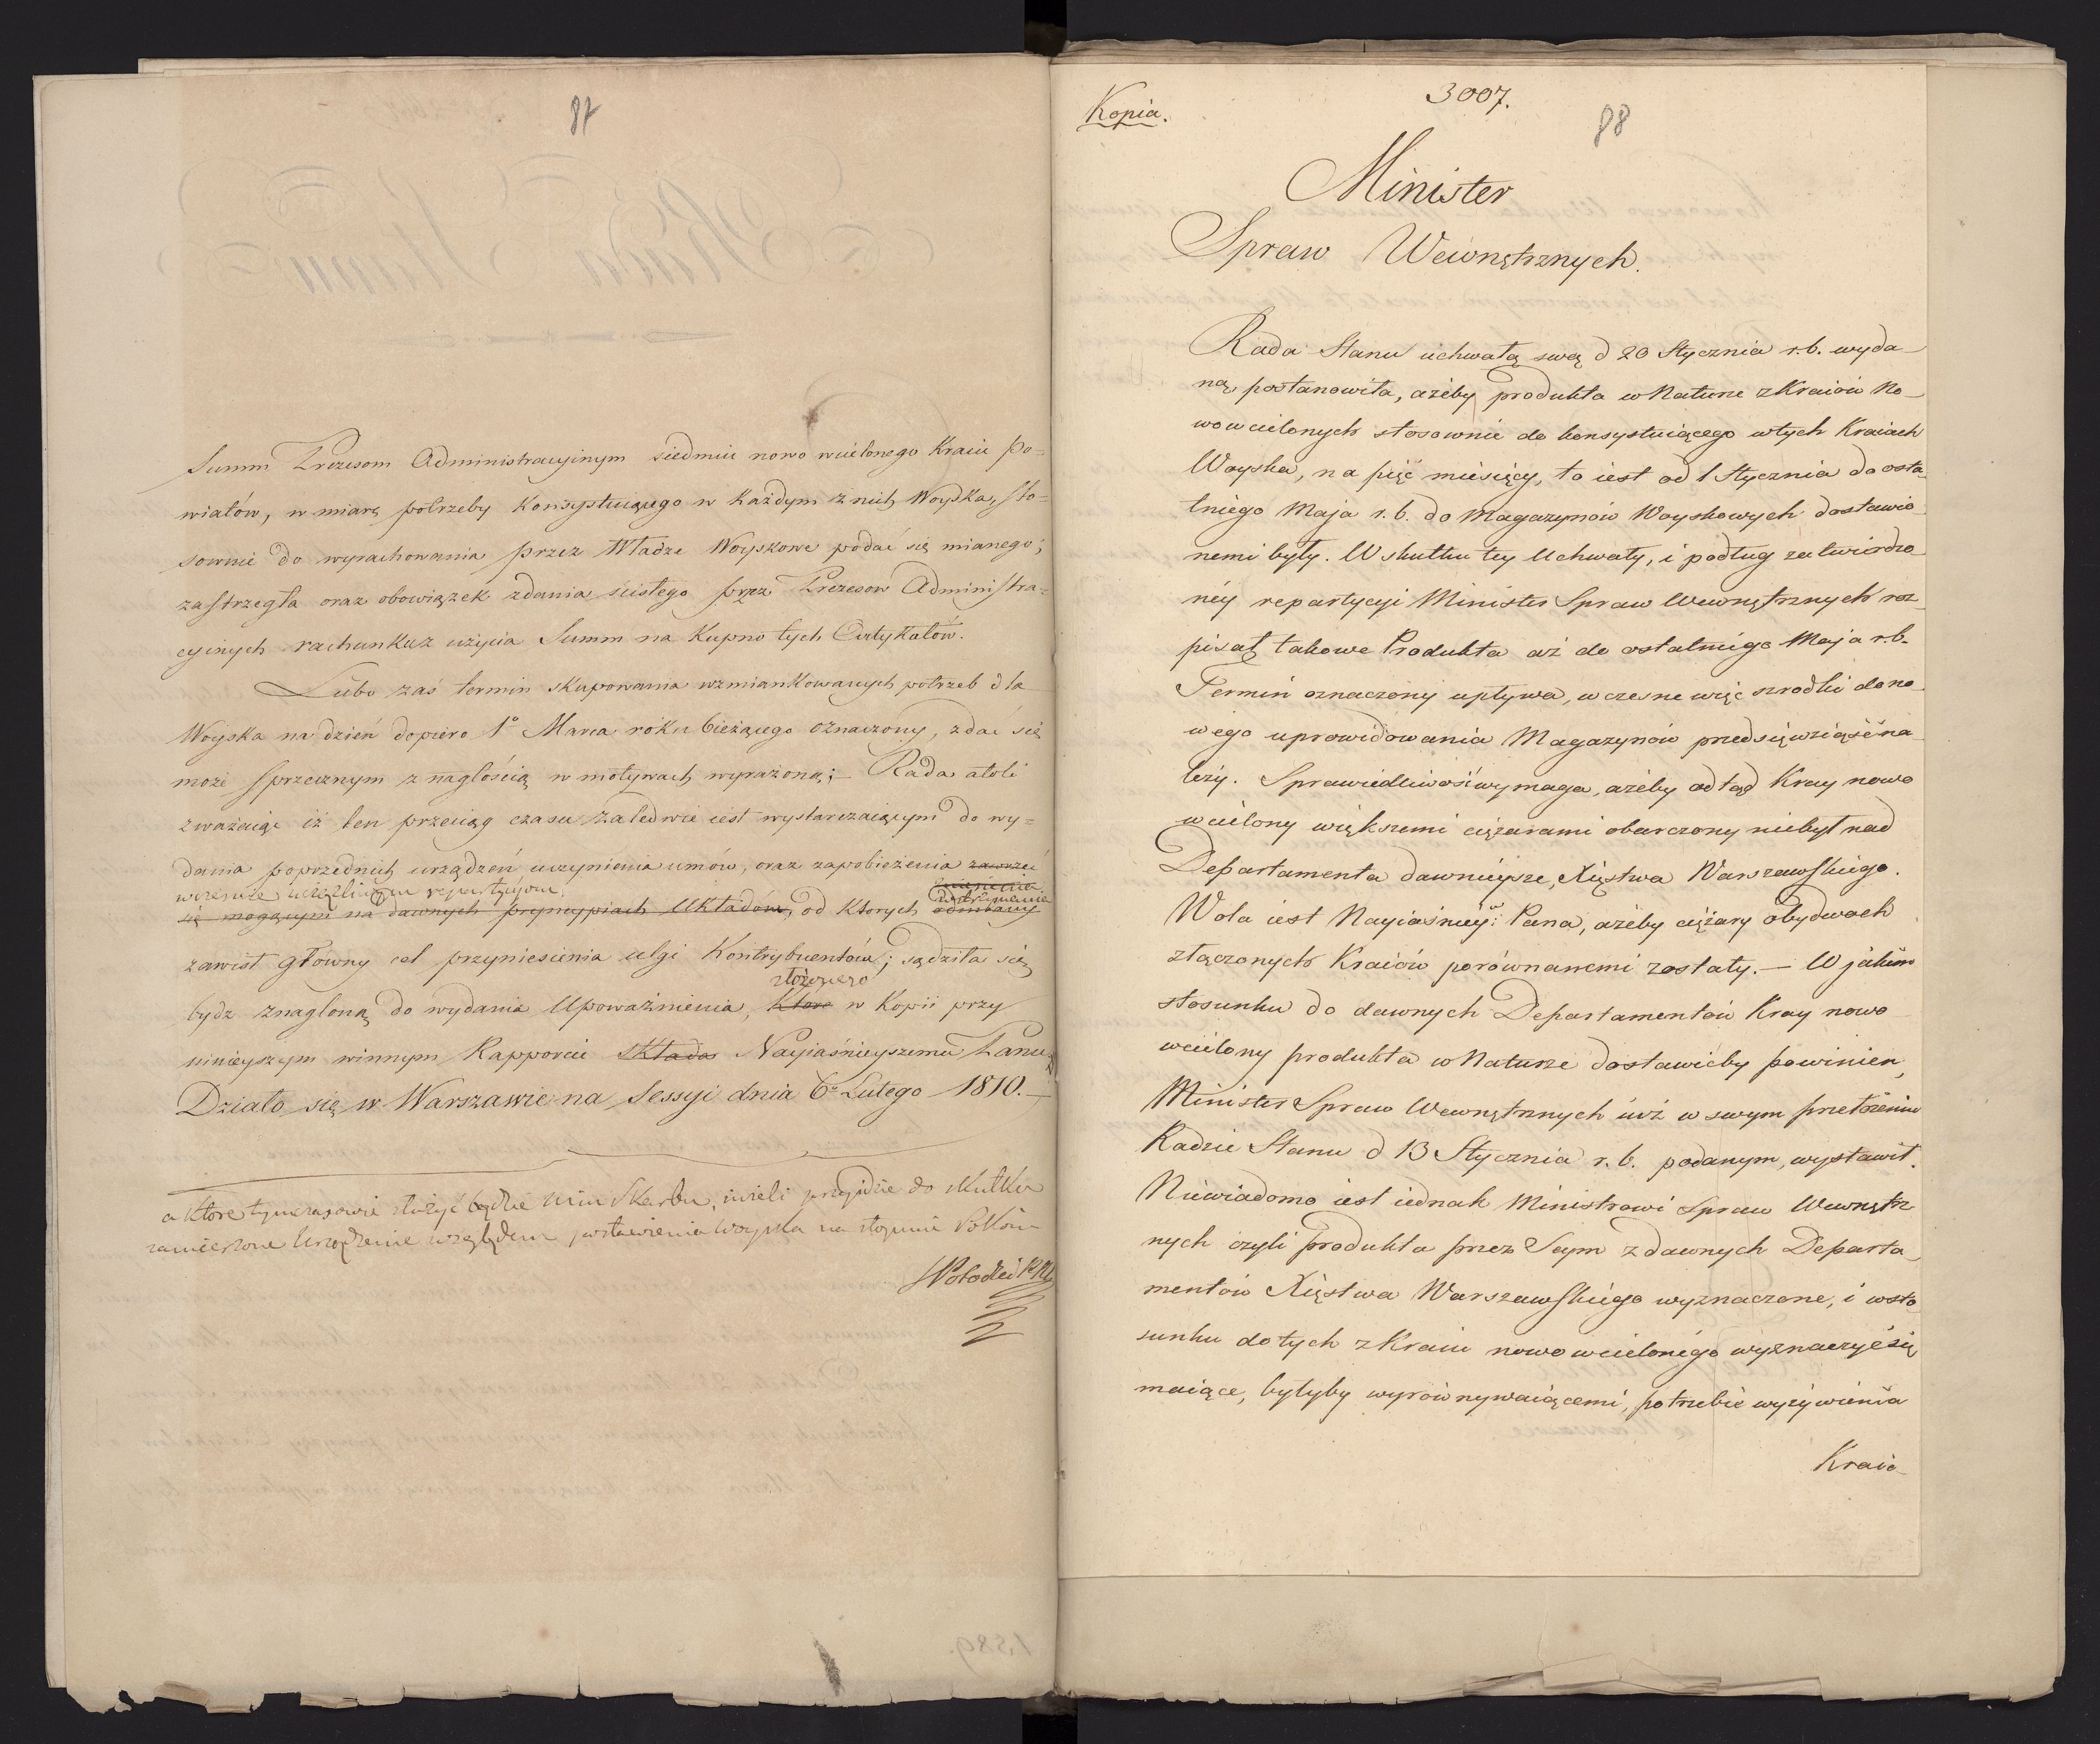 87
Summ Prezesom Administracyinym siedmiu nowo wcielonego Kraiu po=
wiatów, w miarę potrzeby Konsystuiącego w każdym z nich Woyska, sto=
sownie do wyrachowania przez Władze Woyskowe podać się mianego;
zastrzegła oraz obowiązek zdania ścisłego przez Prezesow Administra=
cyinych rachunku z użycia Summ na Kupno tych Artykułów.
Lubo zaś termin skupowania wzmiankowanych potrzeb dla
Woyska na dzień dopiero 1º Marca roku bieżącego oznaczony, zdać się
może sprzecznym z nagłością w motywach wyrażoną; – Rada atoli
zważaiąc iż ten przeciąg czasu zaledwie iest wystarczaiącym do wy=
dania poprzednich urządzeń, uczynienia umów, oraz zapobieżenia zawrzeć
wszelkie uciążliwym repartycyom
się mogącym na dawnych pryncypiach Układów, od ktorych odmiany
zawisł główny cel przyniesienia ulgi Kontrybuentów; sądziła się
złożonego
bydz znagloną do wydania Upoważnienia, ktore w Kopii przy
ninieyszym winnym Rapporcie składa Nayiaśnieyszemu Panu
Działo się w Warszawie na Sessyi dnia 6º Lutego 1810. –
a które tymczasowie służyć będzie Min Skarbu, ieżeli przyidzie do skutku
zamierzone Urządzenie względem postawienia Woyska na stopnie Pokoiu
Kopia.
3007.
88
Minister
Spraw Wewnętrznych.
Rada Stanu uchwałą swą d 20 Stycznia r.b. wyda-
ną, postanowiła, ażeby produkta w Naturze z Kraiów No-
wowcielonych stosownie do konsystuiącego w tych Kraiach
Woyska, na pięć miesięcy, to iest od 1 Stycznia do osta-
tniego Maja r.b. do Magazynów Woyskowych dostawio-
nemi były. W skutku tey Uchwały, i podług zatwierdzo-
néy repartycyi Minister Spraw Wewnętrznych roz-
pisał takowe Produkta aż do ostatniégo Maja r.b.
Termin oznaczony upływa, wczesne więc szrodki do no-
wego uprowidowania Magazynów przedsięwziąść na-
leży. Sprawiedliwość wymaga, ażeby odtąd Kray nowo
wcielony większemi ciężarami obarczony niebył nad
Departamenta dawnieysze, Xięstwa Warszawskiego.
Wola iest Nayiaśniéy: Pana, ażeby ciężary obydwoch
złączonych Kraiów porównanemi zostały. – W jakim
stosunku do dawnych Departamentów Kray nowo
wcielony produkta w Naturze dostawićby powinien,
Minister Spraw Wewnętrznych iuż w swym przełożeniu
Radzie Stanu d 13 Stycznia r.b. podanym, wystawił.
Niewiadomo iest iednak Ministrowi Spraw Wewnętrz-
nych czyli produkta przez Seym z dawnych Departa-
mentów Xięstwa Warszawskiégo wyznaczone, i w sto-
sunku do tych z Kraiu nowo wcielonégo wyznaczyć się
maiące, byłyby wyrównywaiącemi, potrzebie wyżywienia
Kraio-